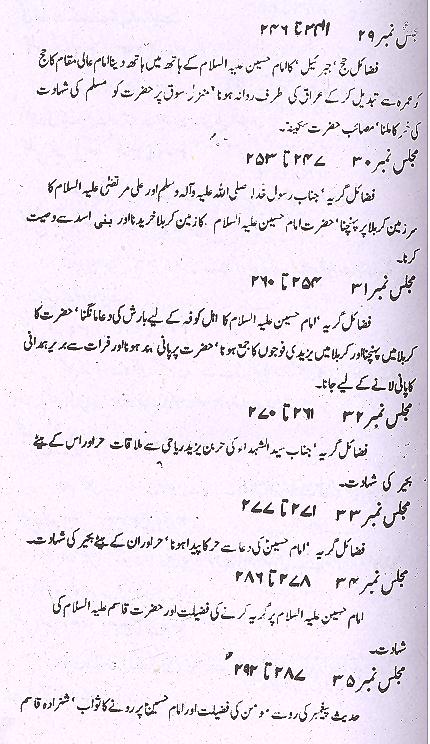 مجلس نمبر ۲۹ ۲۳۹ تا ۲۴۶
فضائل حج ‘ جبرئیل ‘ کا امام حسین علیہ السلام کے ہاتھ میں ہاتھ دینا امام عالی مقام کا حج
کو عمرہ سے تبدیل کر کے عراق کی طرف روانہ ہونا ‘ منزل سوق پر حضرت کو مسلم کی شہادت
کی خبر کا ملنا ‘ مصائب حضرت سکینہؑ۔
مجلس نمبر ۳۰ ۲۴۷ تا ۲۵۳
فضائل گریہ ‘ جناب رسول خدا صلی اللہ علیہ وآلہ وسلم اور علی مرتضیٰ علیہ السلام کا
سرزمین کربلا پر پہنچنا ‘ حضرت امام حسین علیہ السلام کا زمین کربلا خریدنا اور بنی اسد سے وصیت
کرنا۔
مجلس نمبر ۳۱ ۲۵۴ تا ۲۶۰
فضائل گریہ ‘ امام حسین علیہ السلام کا اہل کوفہ کے لیے بارش کی دعا مانگنا ‘ حضرت کا
کربلا میں پہنچنا اور کربلا میں یزیدی فوجوں کا جمع ہونا ‘ حضرت پر پانی بند ہونا اور فرات سے بریر ہمدانی
کا پانی لانے کے لیے جانا۔
مجلس نمبر ۳۲ ۲۶۱ تا ۲۷۰
فضائل گریہ ‘ جناب سید الشہداء کی حر بن یزید ریاحی سے ملاقات حر اور اس کے بیٹے
بحیر کی شہادت۔
مجلس نمبر ۳۳ ۲۷۱ تا ۲۷۷
فضائل گریہ ‘ امام حسینؑ کی دعا سے حر کا پیدا ہونا ‘ حر اور ان کے بیٹے بحیر کی شہادت۔
مجلس نمبر ۳۴ ۲۷۸ تا ۲۸۶
امام حسین علیہ السلام پر گریہ کرنے کی فضیلت اور حضرت قاسم علیہ السلام کی
شہادت۔
مجلس نمبر ۳۵ ۲۸۷ تا ۲۹۲
حدیث پیغمبر کی رو سے مومن کی فضیلت اور امام حسینؑ پر رونے کا ثواب ‘ شہزادہ قاسم